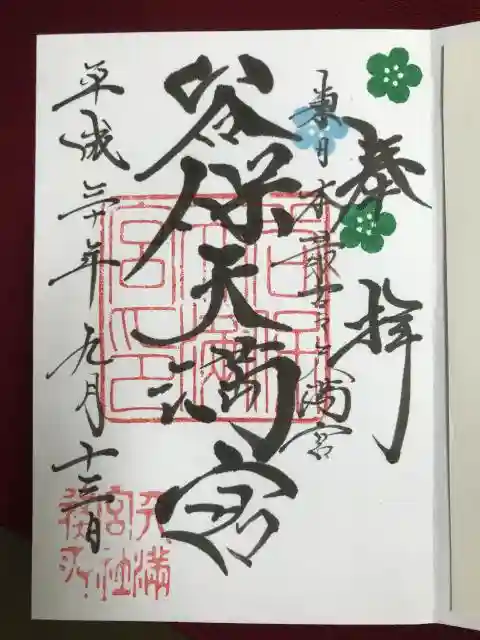 奉拝
東日本最古之天満宮
谷保天満宮
平成三十年九月十三日
天満
宮社
務所